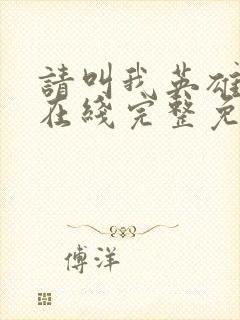 請叫我英雄
在綫完整免
傅洋